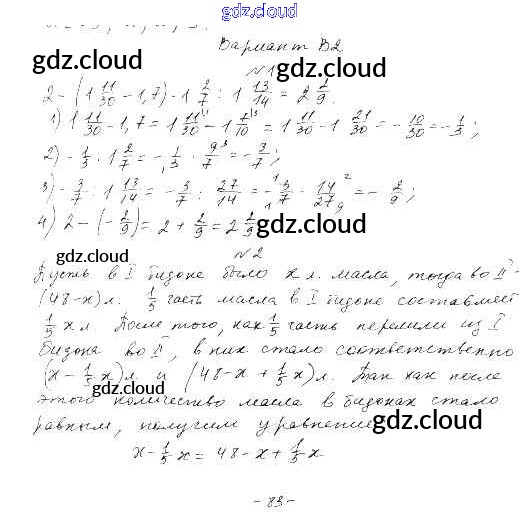 gdz.cloud
Вариант В2
gdz.cloud gdz.cloud
№1
2 - (1 11/30 - 1,7) · 1 2/7 : 1 13/14 = 2 2/9.
1) 1 11/30 - 1,7 = 1 11/30 - 1 7/10 = 1 11/30 - 1 21/30 = - 10/30 = - 1/3;
2) - 1/3 · 1 2/7 = - 1/3 · 9/7 = - 3/7;
3) - 3/7 : 1 13/14 = - 3/7 : 27/14 = - 3/7 · 14/27 = - 2/9;
4) 2 - (- 2/9) = 2 + 2/9 = 2 2/9
gdz.cloud
№2
gdz.cloud
Пусть в I бидоне было x л. масла, тогда во II -
(48-x) л. 1/5 часть масла в I бидоне составляет
1/5 x л. После того, как 1/5 часть перелили из I
бидона во II, в них стало соответственно
(x - 1/5 x) л. и (48-x + 1/5 x) л. Так как после
gdz.cloud gdz.cloud
этого количество масла в бидонах стало
равным, получим уравнение
gdz.cloud
x - 1/5 x = 48 - x + 1/5 x
- 83 -